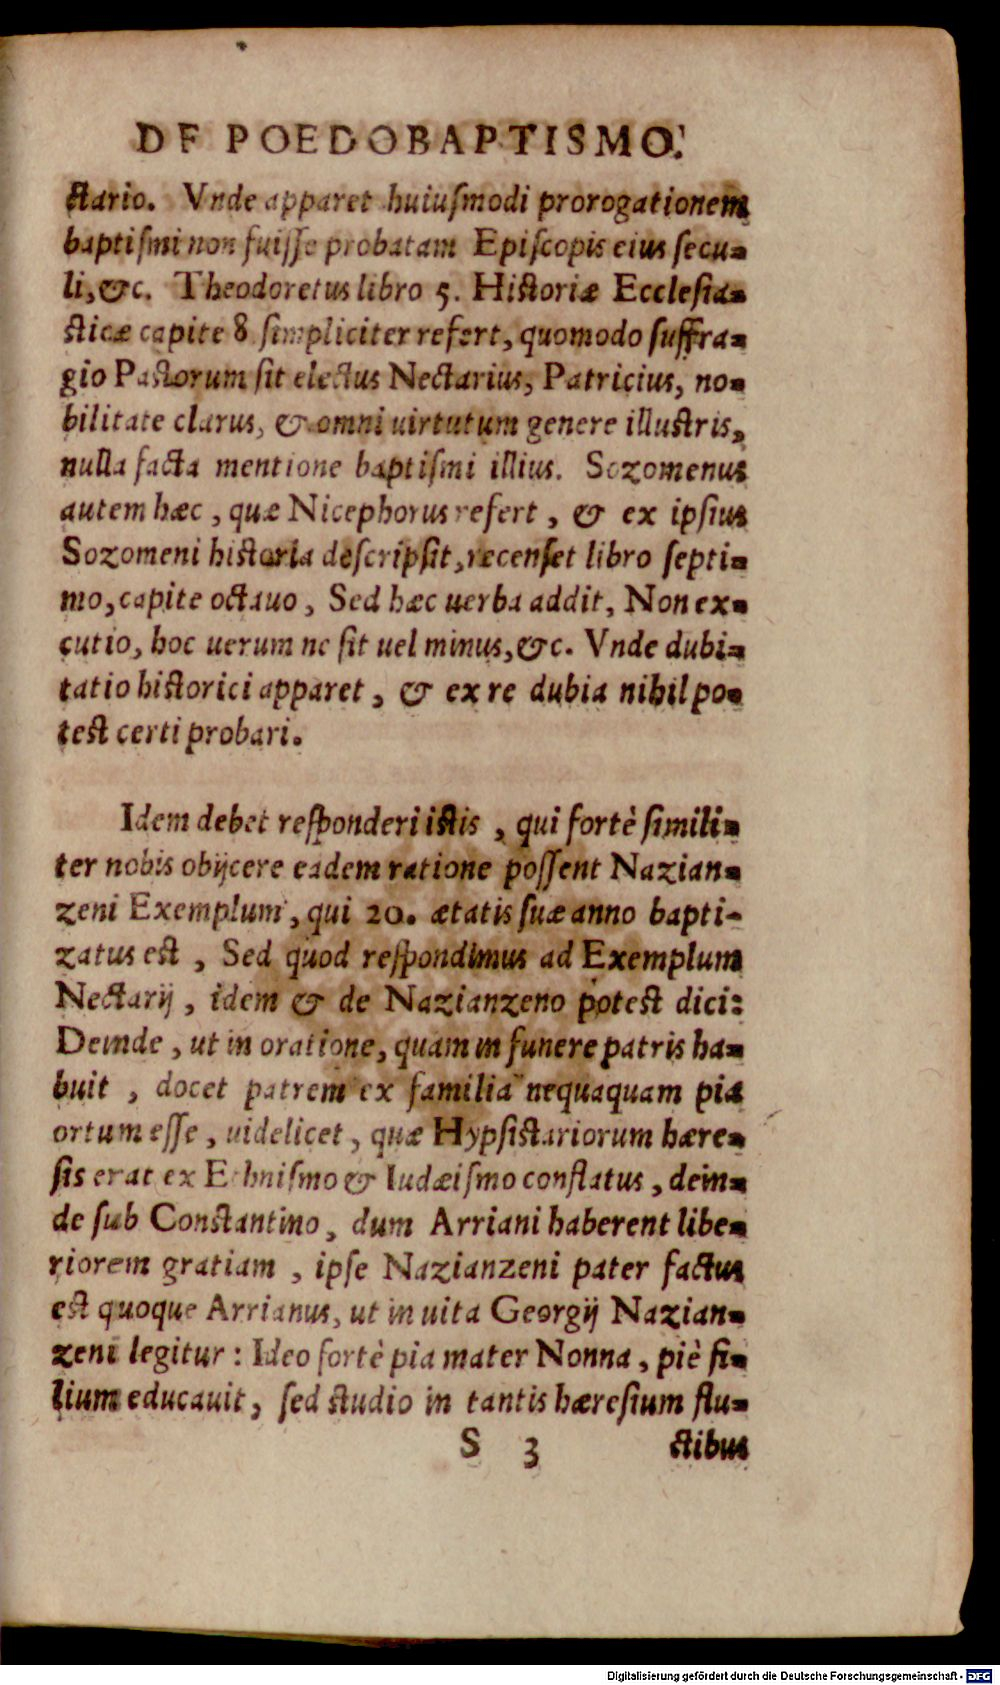 DE POEDOBAPTISMO.
ctario. Vnde apparet huiusmodi prorogationem
baptismi non fuisse probatam Episcopis eius secu-
li, &c. Theodoretus libro 5. Historiæ Ecclesia-
sticæ capite 8 simpliciter refert, quomodo suffra-
gio Pastorum sit electus Nectarius, Patricius, no-
bilitate clarus, & omni uirtutum genere illustris,
nulla facta mentione baptismi illius. Sozomenus
autem hæc, quæ Nicephorus refert, & ex ipsius
Sozomeni historia descripsit, recenset libro septi-
mo, capite octauo, Sed hæc uerba addit, Non ex-
cutio, hoc uerum ne sit uel minus, &c. Vnde dubi-
tatio historici apparet, & ex re dubia nihil po-
test certi probari.
Idem debet responderi istis, qui fortè simili-
ter nobis obijcere eadem ratione possent Nazian-
zeni Exemplum, qui 20. ætatis suæ anno bapti-
zatus est, Sed quod respondimus ad Exemplum
Nectarij, idem & de Nazianzeno potest dici:
Deinde, ut in oratione, quam in funere patris ha-
buit, docet patrem ex familia nequaquam pia
ortum esse, uidelicet, quæ Hypsistariorum hære-
sis erat ex Ethnismo & Iudæismo conflatus, dein-
de sub Constantino, dum Arriani haberent libe-
riorem gratiam, ipse Nazianzeni pater factus
est quoque Arrianus, ut in uita Georgij Nazian-
zeni legitur: Ideo fortè pia mater Nonna, piè fi-
lium educauit, sed studio in tantis hæresium flu-
S 3 ctibus
Digitalisierung gefördert durch die Deutsche Forschungsgemeinschaft - DFG